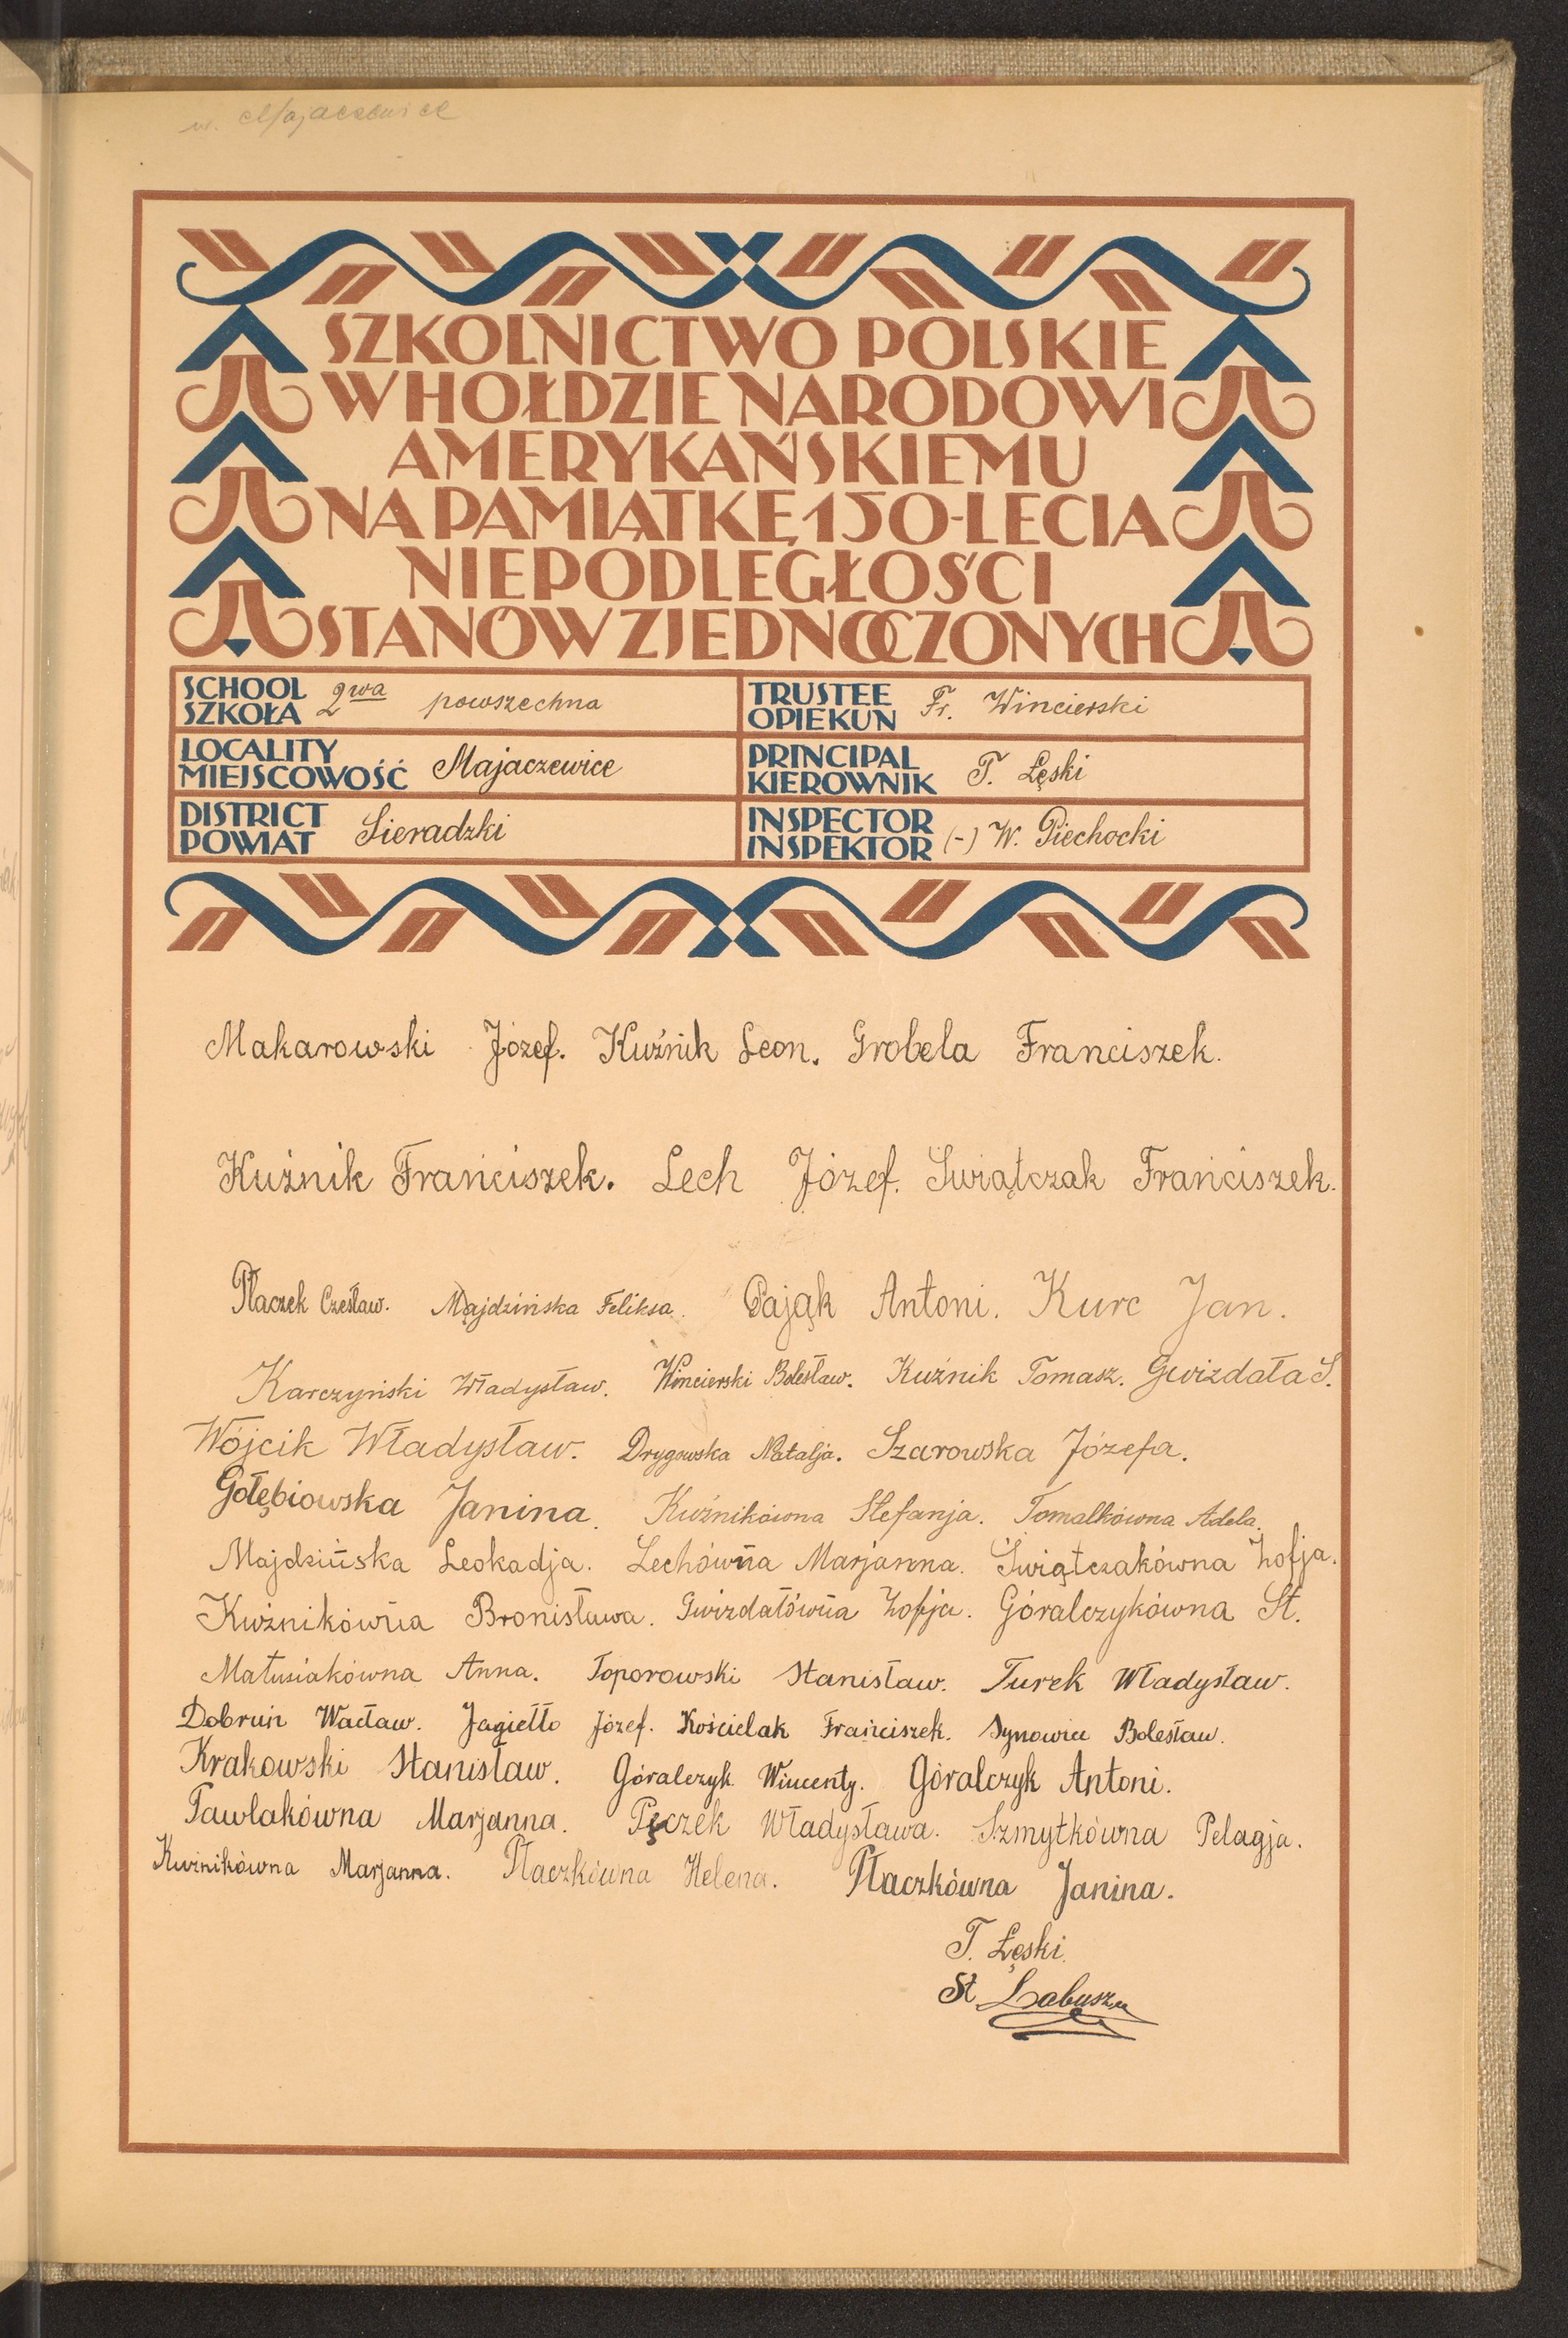 w. Majaczewice
SZKOLNICTWO POLSKIE
W HOŁDZIE NARODOWI
AMERYKAŃSKIEMU
NA PAMIĄTKĘ 150-LECIA
NIEPODLEGŁOŚCI
STANÓW ZJEDNOCZONYCH
SCHOOL
SZKOŁA 2wa powszechna
TRUSTEE
OPIEKUN Fr. Wincierski
LOCALITY
MIEJSCOWOŚĆ Majaczewice
PRINCIPAL
KIEROWNIK T. Łęski
DISTRICT
POWIAT Sieradzki
INSPECTOR
INSPEKTOR (-) W. Piechocki
Makarowski Józef. Kuźnik Leon. Grobela Franciszek.
Kuźnik Frańciszek. Lech Józef. Świątczak Frańciszek.
Płaczek Czesław. Majdzińska Feliksa. Pająk Antoni. Kurc Jan.
Karczyński Władysław. Wincierski Bolesław. Kuźnik Tomasz. Gwizdała S.
Wójcik Władysław. Drygowska Natalja. Szarowska Józefa.
Gołębiowska Janina. Kuźnikówna Stefanja. Tomalkówna Adela.
Majdzińska Leokadja. Lechówna Marjanna. Świątczakówna Zofja.
Kuźnikówna Bronisława. Gwizdałówna Zofja. Góralczykówna St.
Matusiakówna Anna. Toporowski Stanisław. Turek Władysław.
Dobruń Wacław. Jagiełło Józef. Kościelak Frańciszek. Synowiec Bolesław.
Krakowski Stanisław. Góralczyk Wincenty. Góralczyk Antoni.
Pawlakówna Marjanna. Pęczek Władysława. Szmytkówna Pelagja.
Kuźnikówna Marjanna. Płaczkówna Helena. Płaczkówna Janina.
T. Łęski.
St